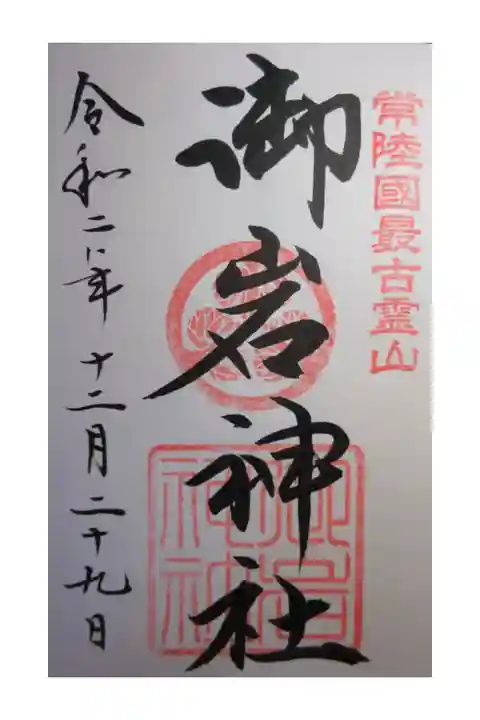 常陸國最古霊山
御岩神社
令和二年十二月二十九日